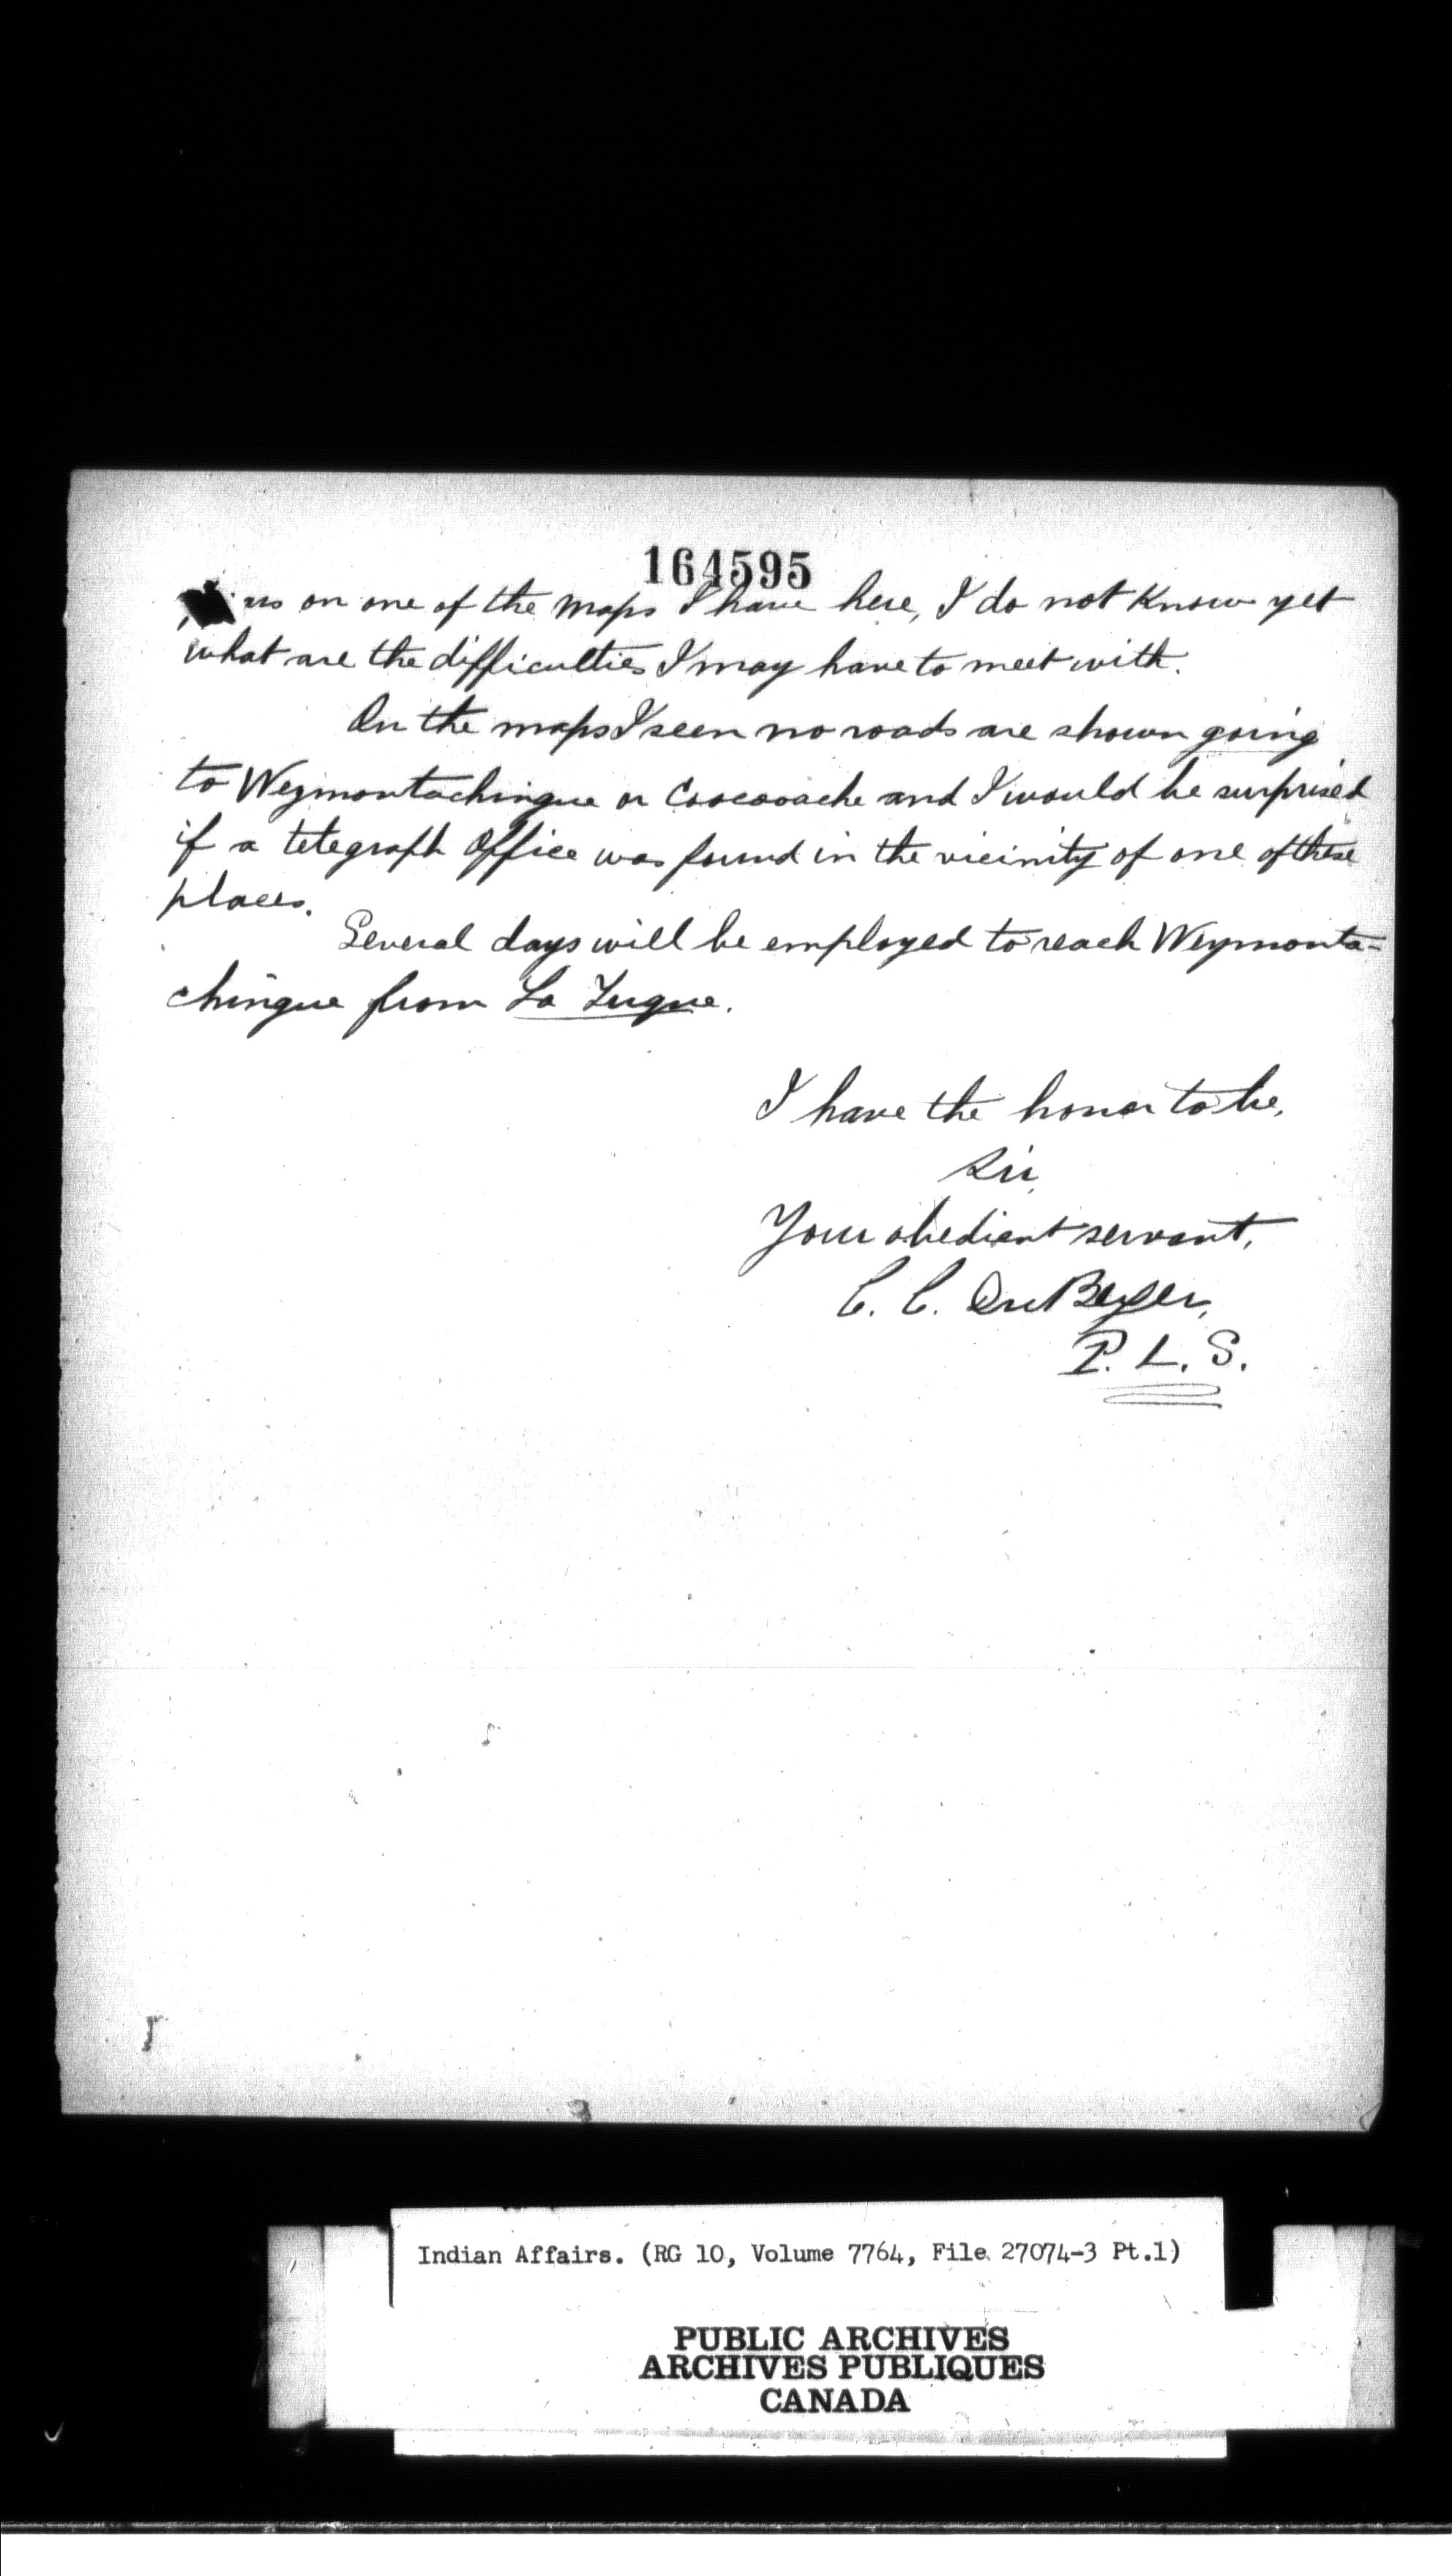 164595
on one of the maps I have here, I do not Know yet
what are the difficulties I may have to meet with.
On the maps I seen no roads are shown going
to Weymontachingue or Coocooache and I would be surprised
if a telegraph Office was found in the vicinity of one of these
places.
Several days will be employed to reach Weymonta=
chingue from La Tuque.
I have the honor to be,
Sir,
Your obedient servant,
C. C. DuBerger,
P. L. S.
Indian Affairs. (RG 10, Volume 7764, File 27074-3 Pt.1)
PUBLIC ARCHIVES
ARCHIVES PUBLIQUES
CANADA